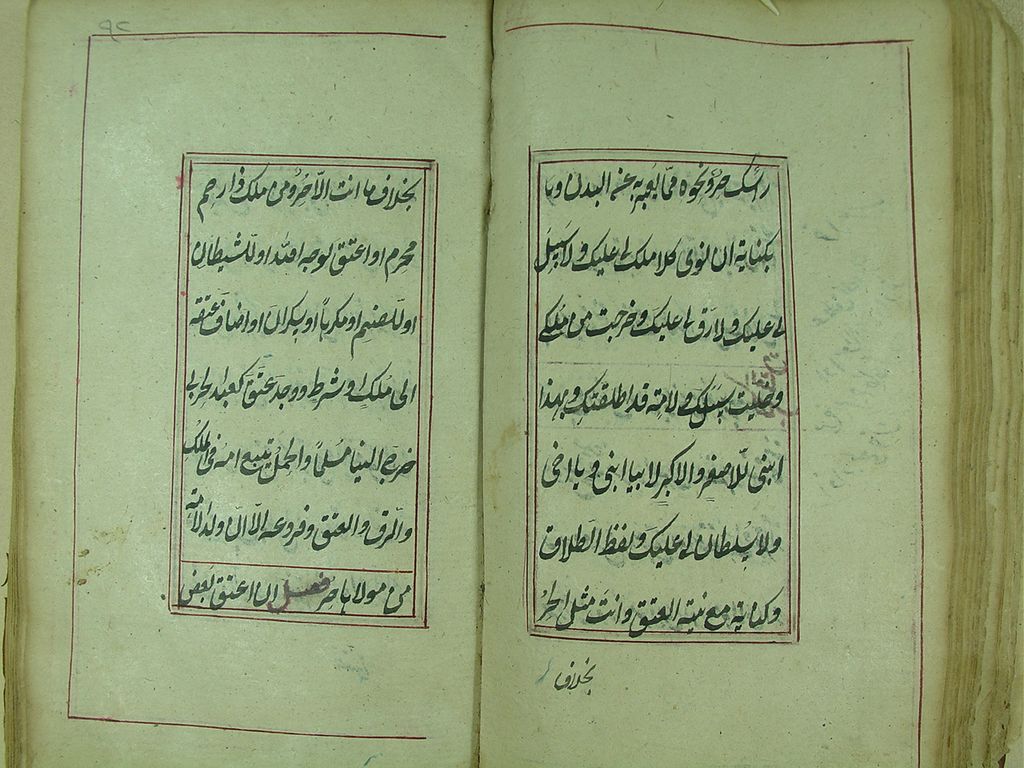 رأسك حر ونحوه مما يعبر به عن البدن وبا
بكناية ان نوى كلا ملك لى عليك ولا سبيل
لى عليك ولا رق لى عليك وخرجت من ملكى
وخليت سبيلك ولامته قد اطلقتك وبهذا
ابنى للاصغر والاكبر لا بيا ابنى ويا اخى
ولا سلطان لى عليك ولفظ الطلاق
وكناية مع نية العتق وانت مثل الحر
بخلاف
٩٢
بخلاف ما انت الا حر ومن ملك ذا رحم
محرم او اعتق لوجه الله او للشيطان
او للصنم او مكرها او سكران او اضاف عتقه
الى ملك او شرط ووجد عتق كعبد لحربى
خرج الينا مسلما والحمل يتبع امه فى الملك
والرق والعتق وفروعه الا ان ولد الامة
من مولاها حر فصل ان اعتق بعض